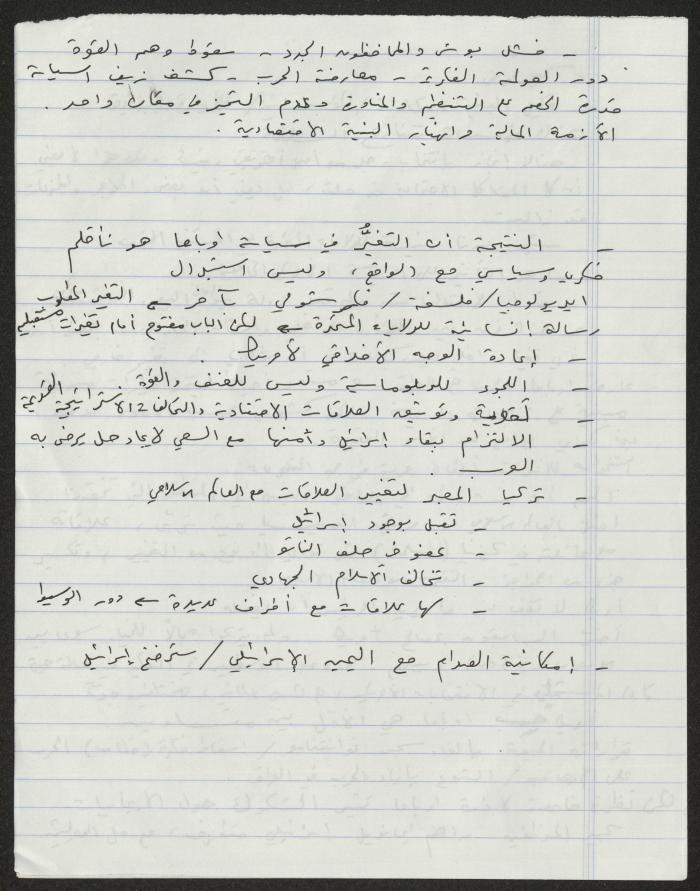 - فشل بوش والمحافظون الجدد - سقوط وهم القوة
دور العولمة الفكرية - معارضة الحرب - كشف زيف السياسة
قدرة الخصم على التنظيم والمناورة وعدم التميز في مقارنة واحد .
الأزمة المالية وانهيار البنية الاقتصادية .
- النتيجة أن التغيُّر في سياسة أوباما هو تأقلم
فكري وسياسي مع الواقع، وليس استبدال
ايديولوجيا / فلسفة / فكر شمولي بآخر ← التغير المطلوب
رسالة إنسانية للولايات المتحدة ← لكن الباب مفتوح أمام تغيرات مستقبلية
- إعادة الوجه الأخلاقي لأمريكا .
- اللجوء للدبلوماسية وليس للعنف والقوة
- وتوثيق العلاقات الاقتصادية والتحالفات الاستراتيجية القديمة
- الالتزام ببقاء إسرائيل وأمنها مع السعي لايجاد حل يرضى به
العرب .
- تركيا المعبر لتغيير العلاقات مع العالم الاسلامي
- تقبل بوجود إسرائيل
- عضو في حلف الناتو
- تخالف الاسلام الجهادي
- لها علاقات مع أطراف عديدة ← دور الوسيط
- إمكانية الصدام مع اليمين الإسرائيلي / سترضخ إسرائيل